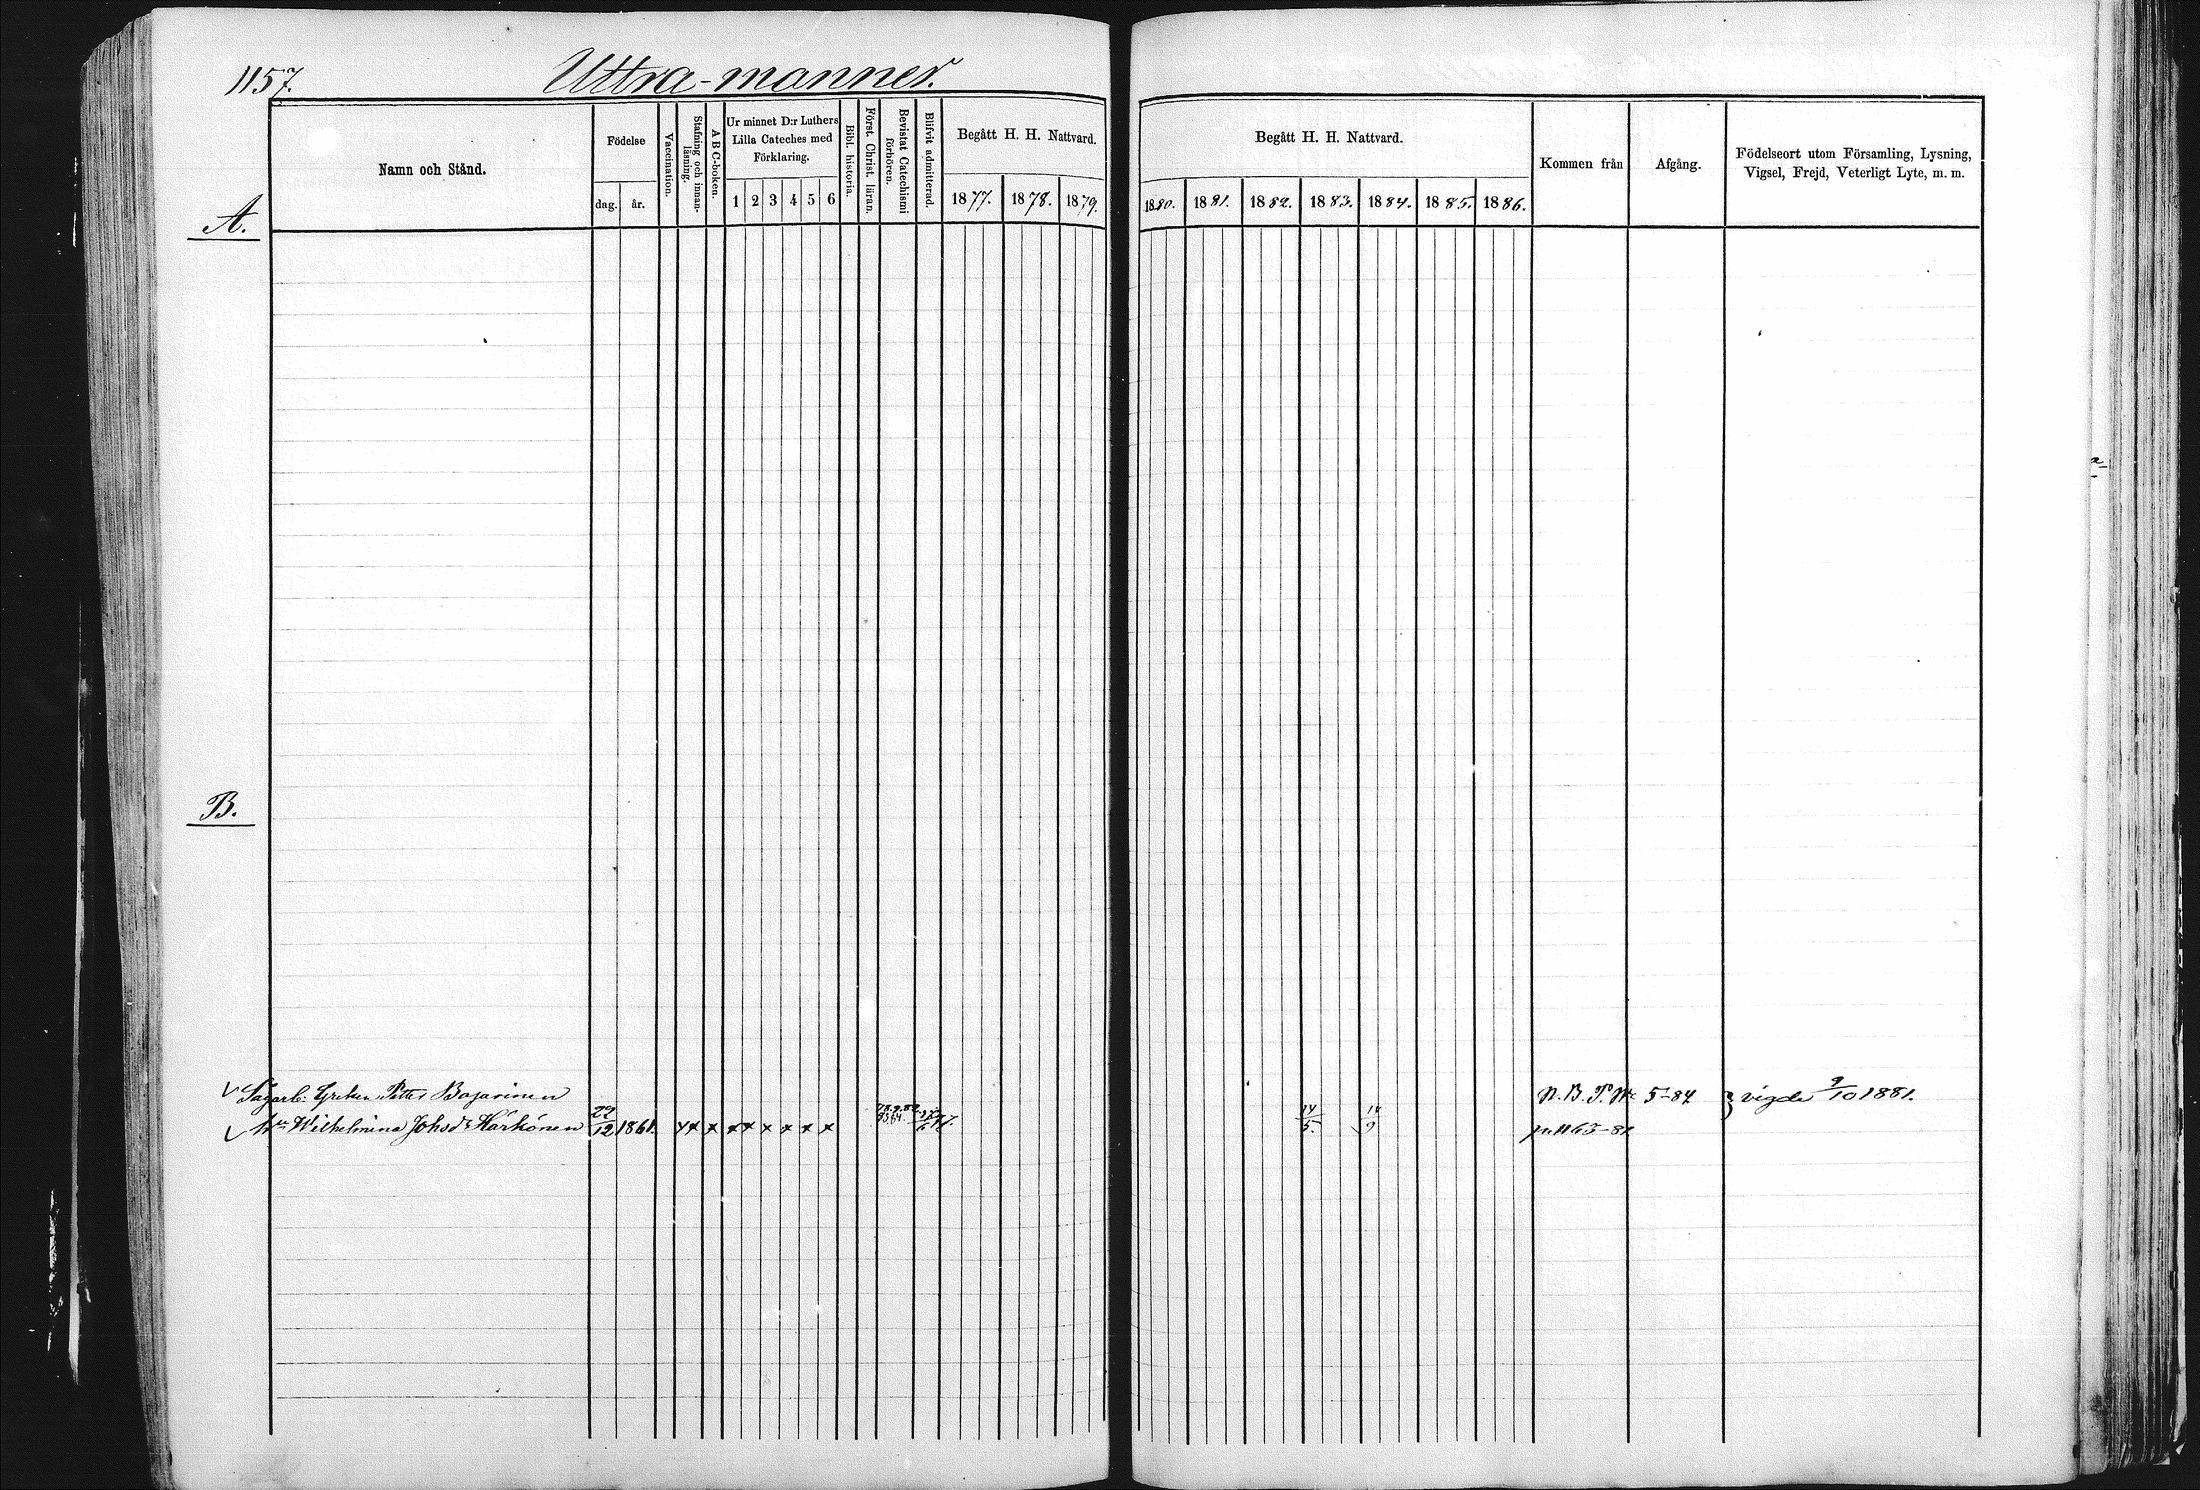 1157.
Uttra-manner.
Namn och Stånd.
Födelse
dag.
år.
Vaccination.
Stafning och innan-läsning.
A B C-boken.
Ur minnet D:r Luthers
Lilla Cateches med
Förklaring.
1 2 3 4 5 6
Bibl. historia.
Först. Christ. läran.
Bevistat Catechismi förhören.
Blifvit admitterad.
Begått H. H. Nattvard.
1877. 1878. 1879.
Begått H. H. Nattvard.
1880. 1881. 1882. 1883. 1884. 1885. 1886.
Kommen från
Afgång.
Födelseort utom Församling, Lysning,
Vigsel, Frejd, Veterligt Lyte, m. m.
A.
B.
Sågarb: Greken Petter Bojarinen N. B. 5-84 vigde 9/10 1881.
Wilhelmina Johsdr Härkönen 29/12 1861. x x x x x x x x 14/5. 14/9 p. 1163-81